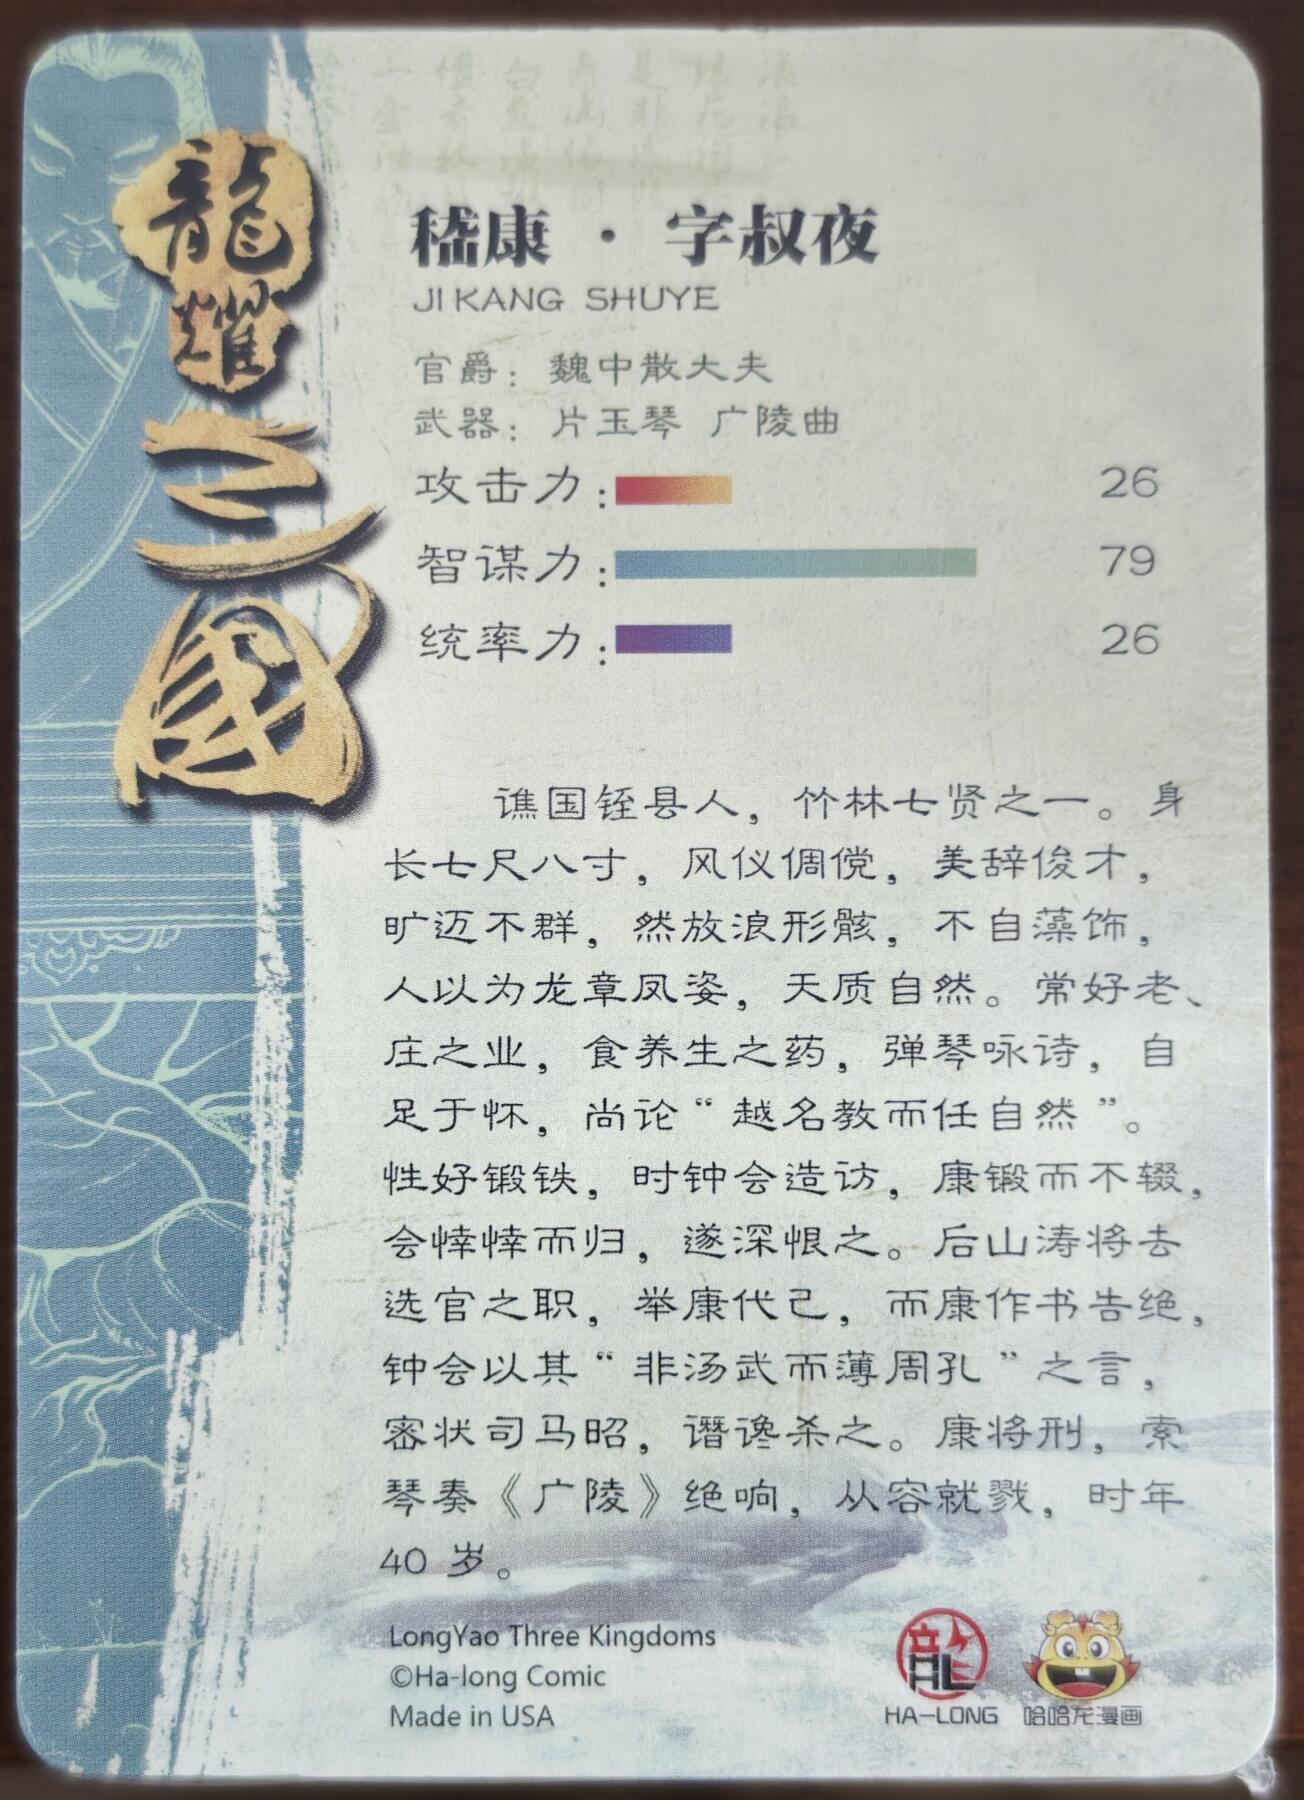 龍耀三國
嵇康 · 字叔夜
JI KANG SHUYE
官爵：魏中散大夫
武器：片玉琴 广陵曲
攻击力：26
智谋力：79
统率力：26
谯国铚县人，竹林七贤之一。身
长七尺八寸，风仪倜傥，美辞俊才，
旷迈不群，然放浪形骸，不自藻饰，
人以为龙章凤姿，天质自然。常好老、
庄之业，食养生之药，弹琴咏诗，自
足于怀，尚论“越名教而任自然”。
性好锻铁，时钟会造访，康锻而不辍，
会悻悻而归，遂深恨之。后山涛将去
选官之职，举康代己，而康作书告绝，
钟会以其“非汤武而薄周孔”之言，
密状司马昭，谮谗杀之。康将刑，索
琴奏《广陵》绝响，从容就戮，时年
40 岁。
LongYao Three Kingdoms
©Ha-long Comic
Made in USA
龍
HL
HA-LONG
哈哈龙漫画